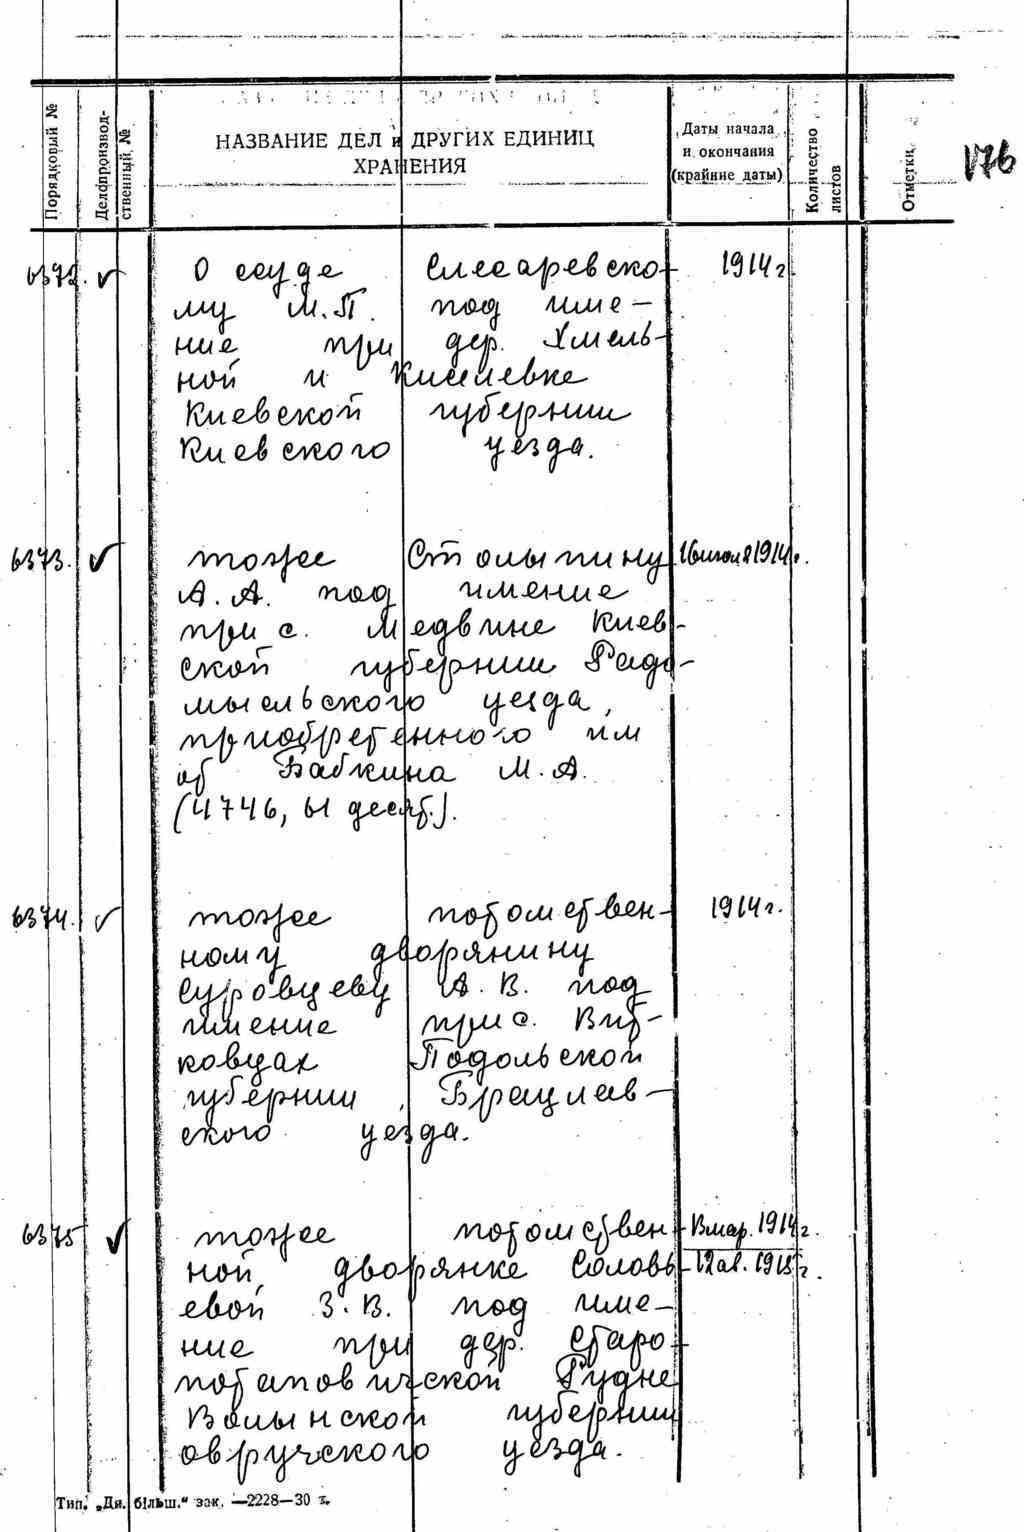 Порядковый №
Делопроизвод-
ственный №
НАЗВАНИЕ ДЕЛ и ДРУГИХ ЕДИНИЦ
ХРАНЕНИЯ
Даты начала
и окончания
(крайние даты)
Количество
листов
Отметки
176
6372. ✓ О ссуде Слесаревско- 1914 г
му М.П. под име-
ние при дер. Хмель-
ной и Киселевке
Киевской губернии
Киевского уезда.
6373. ✓ тоже Столыпину 16 июля 1914 г.
А.А. под имение
при с. Медвине Киев-
ской губернии Радо-
мысльского уезда,
приобретенного им
от Бабкина М.А.
(4746, 61 десят.).
6374. ✓ тоже потомствен- 1914 г.
ному дворянину
Суровцеву А.В. под
имение при с. Вит-
ковцах Подольской
губернии, Брацлав-
ского уезда.
6375 ✓ тоже потомствен- 13 мар. 1914 г.
ной дворянке Соловь- 12 ав. 1915 г.
евой З.В. под име-
ние при дер. Старо-
потаповической Рудне
Волынской губернии
овручского уезда.
Тип. „Дн. більш." зак. —2228—30 т.